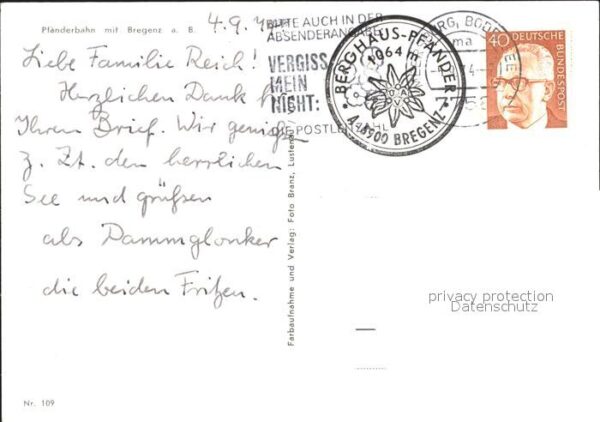 Pfänderbahn mit Bregenz a. B.
4.9.
Liebe Familie Reich!
Herzlichen Dank für
Ihren Brief. Wir genießen
z. Zt. den herrlichen
See und grüßen
als Dammglonker
die beiden Fritzen.
Nr. 109
Farbaufnahme und Verlag: Foto Branz, Lustenau
BITTE AUCH IN DER
ABSENDERANGABE
VERGISS
MEIN
NICHT:
DIE POSTLEITZAHL
BERGHAUS-PFÄNDER
1064
A-6900 BREGENZ
40
DEUTSCHE
BUNDESPOST
privacy protection
Datenschutz